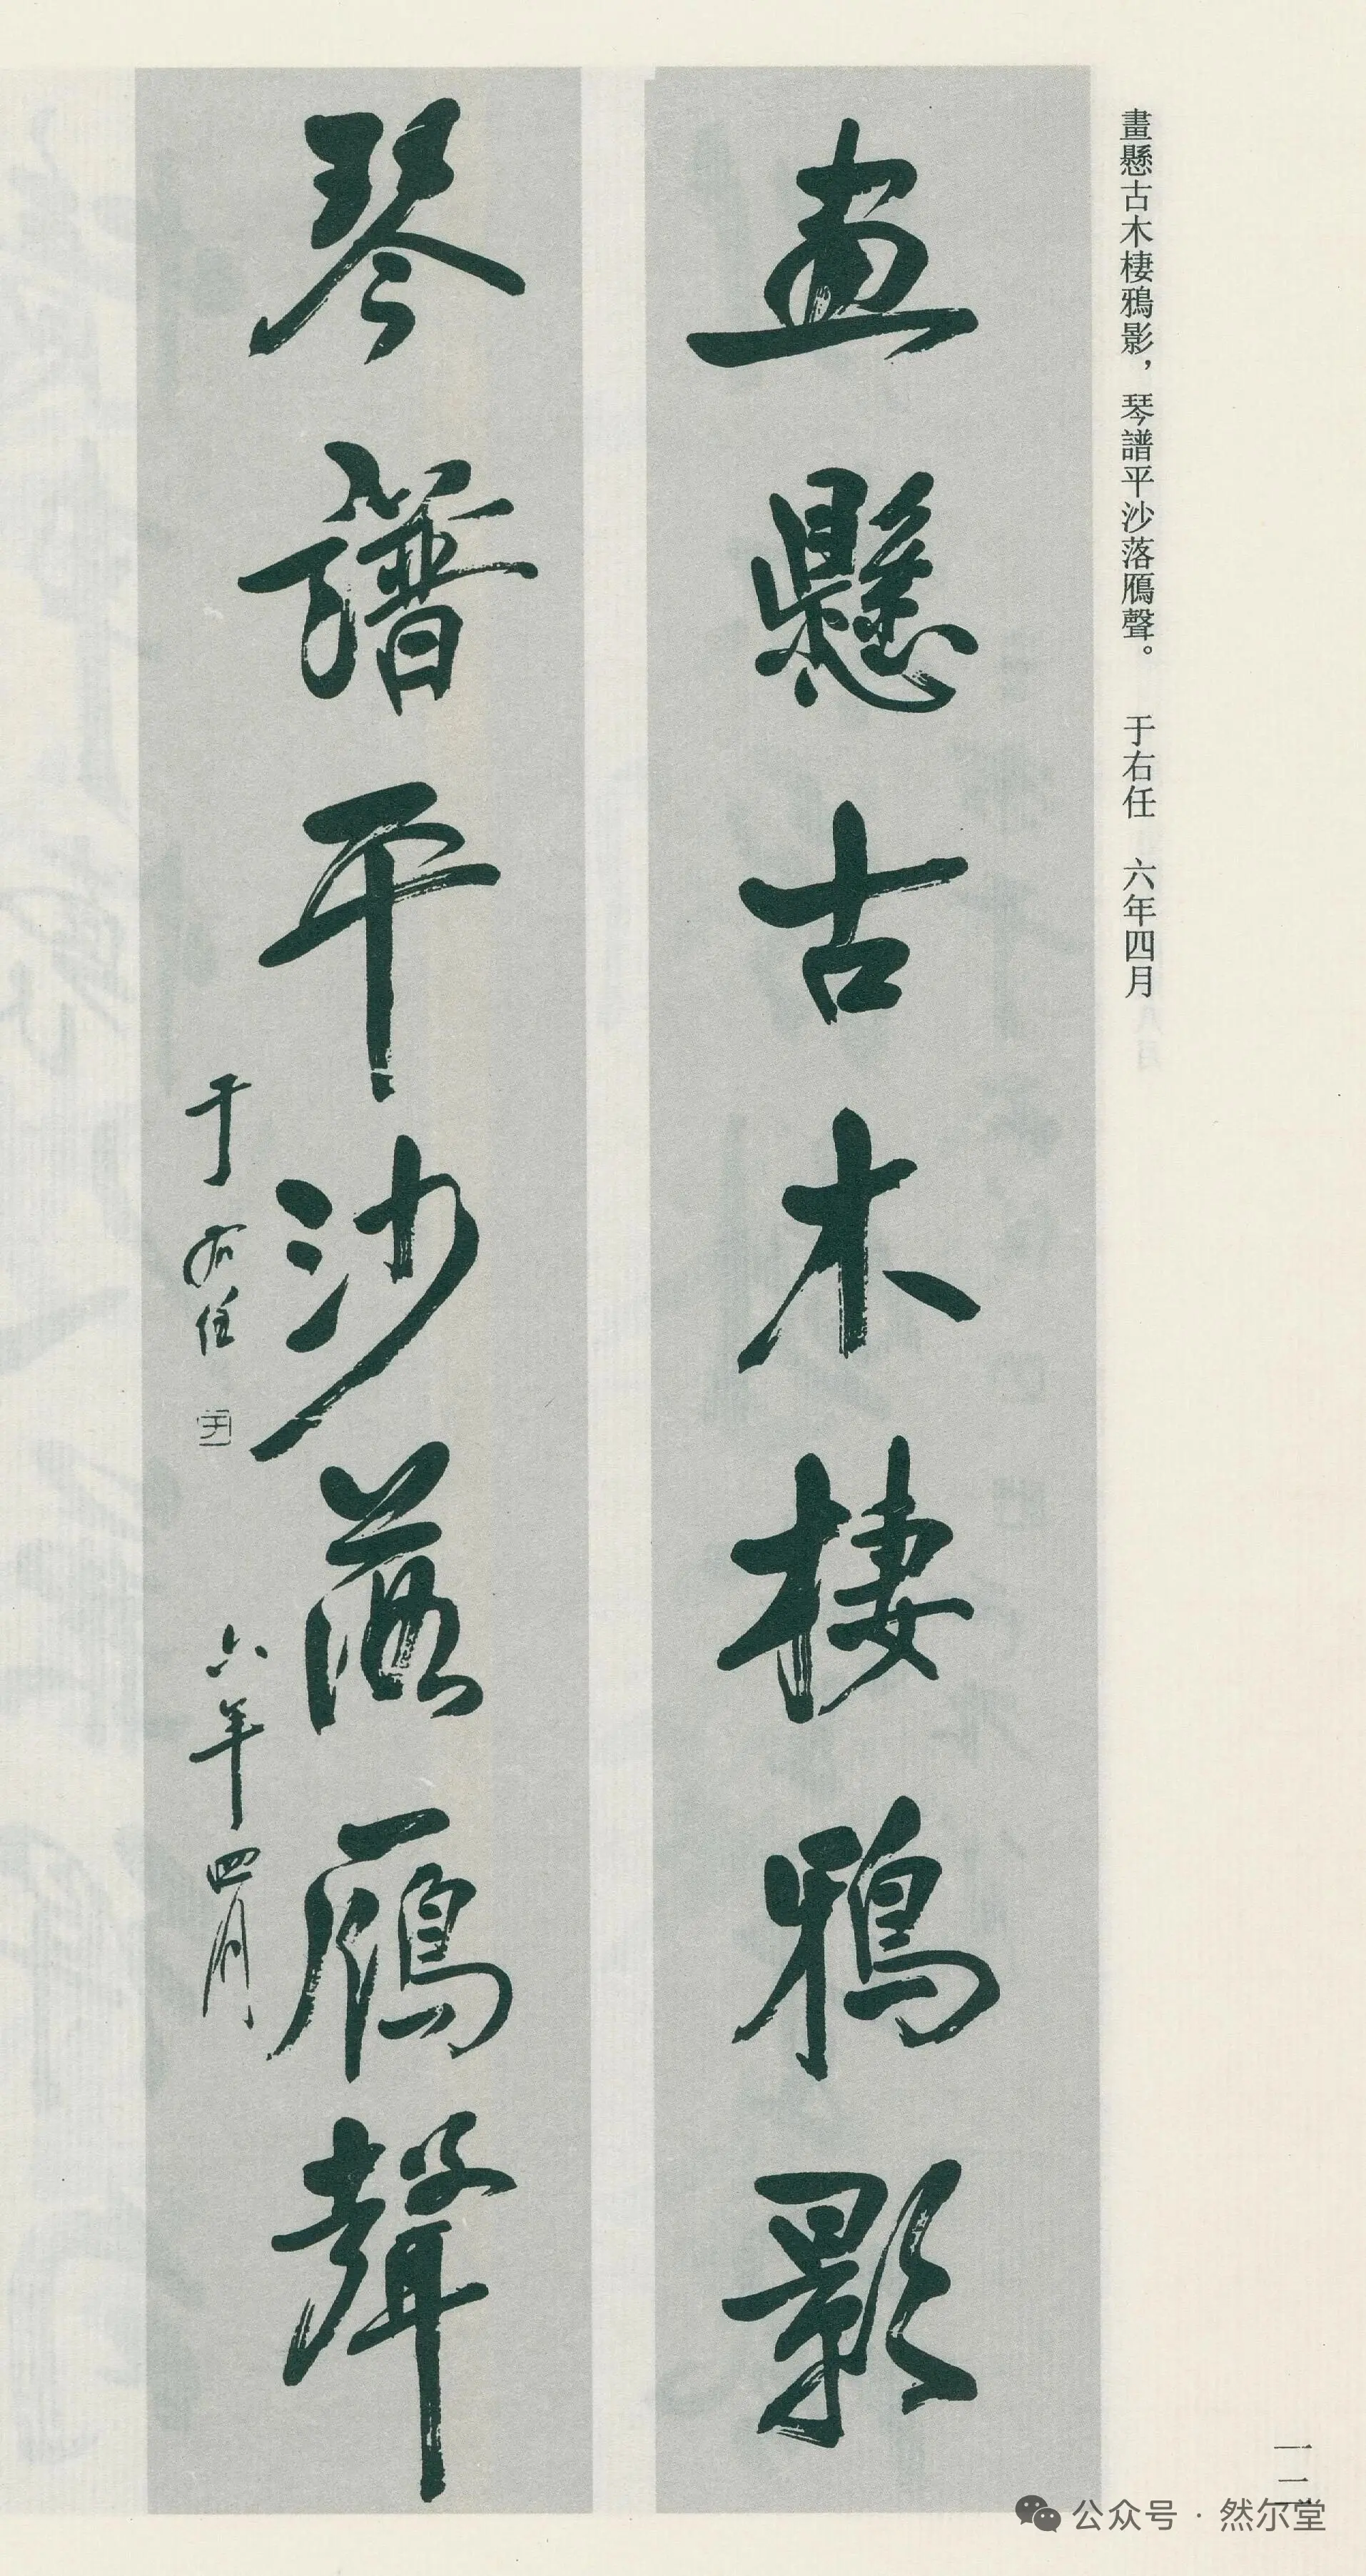 畫懸古木棲鴉影，琴譜平沙落鴈聲。 于右任 六年四月
畫懸古木棲鴉影
琴譜平沙落鴈聲
于右任 六年四月
一二
公众号 · 然尔堂